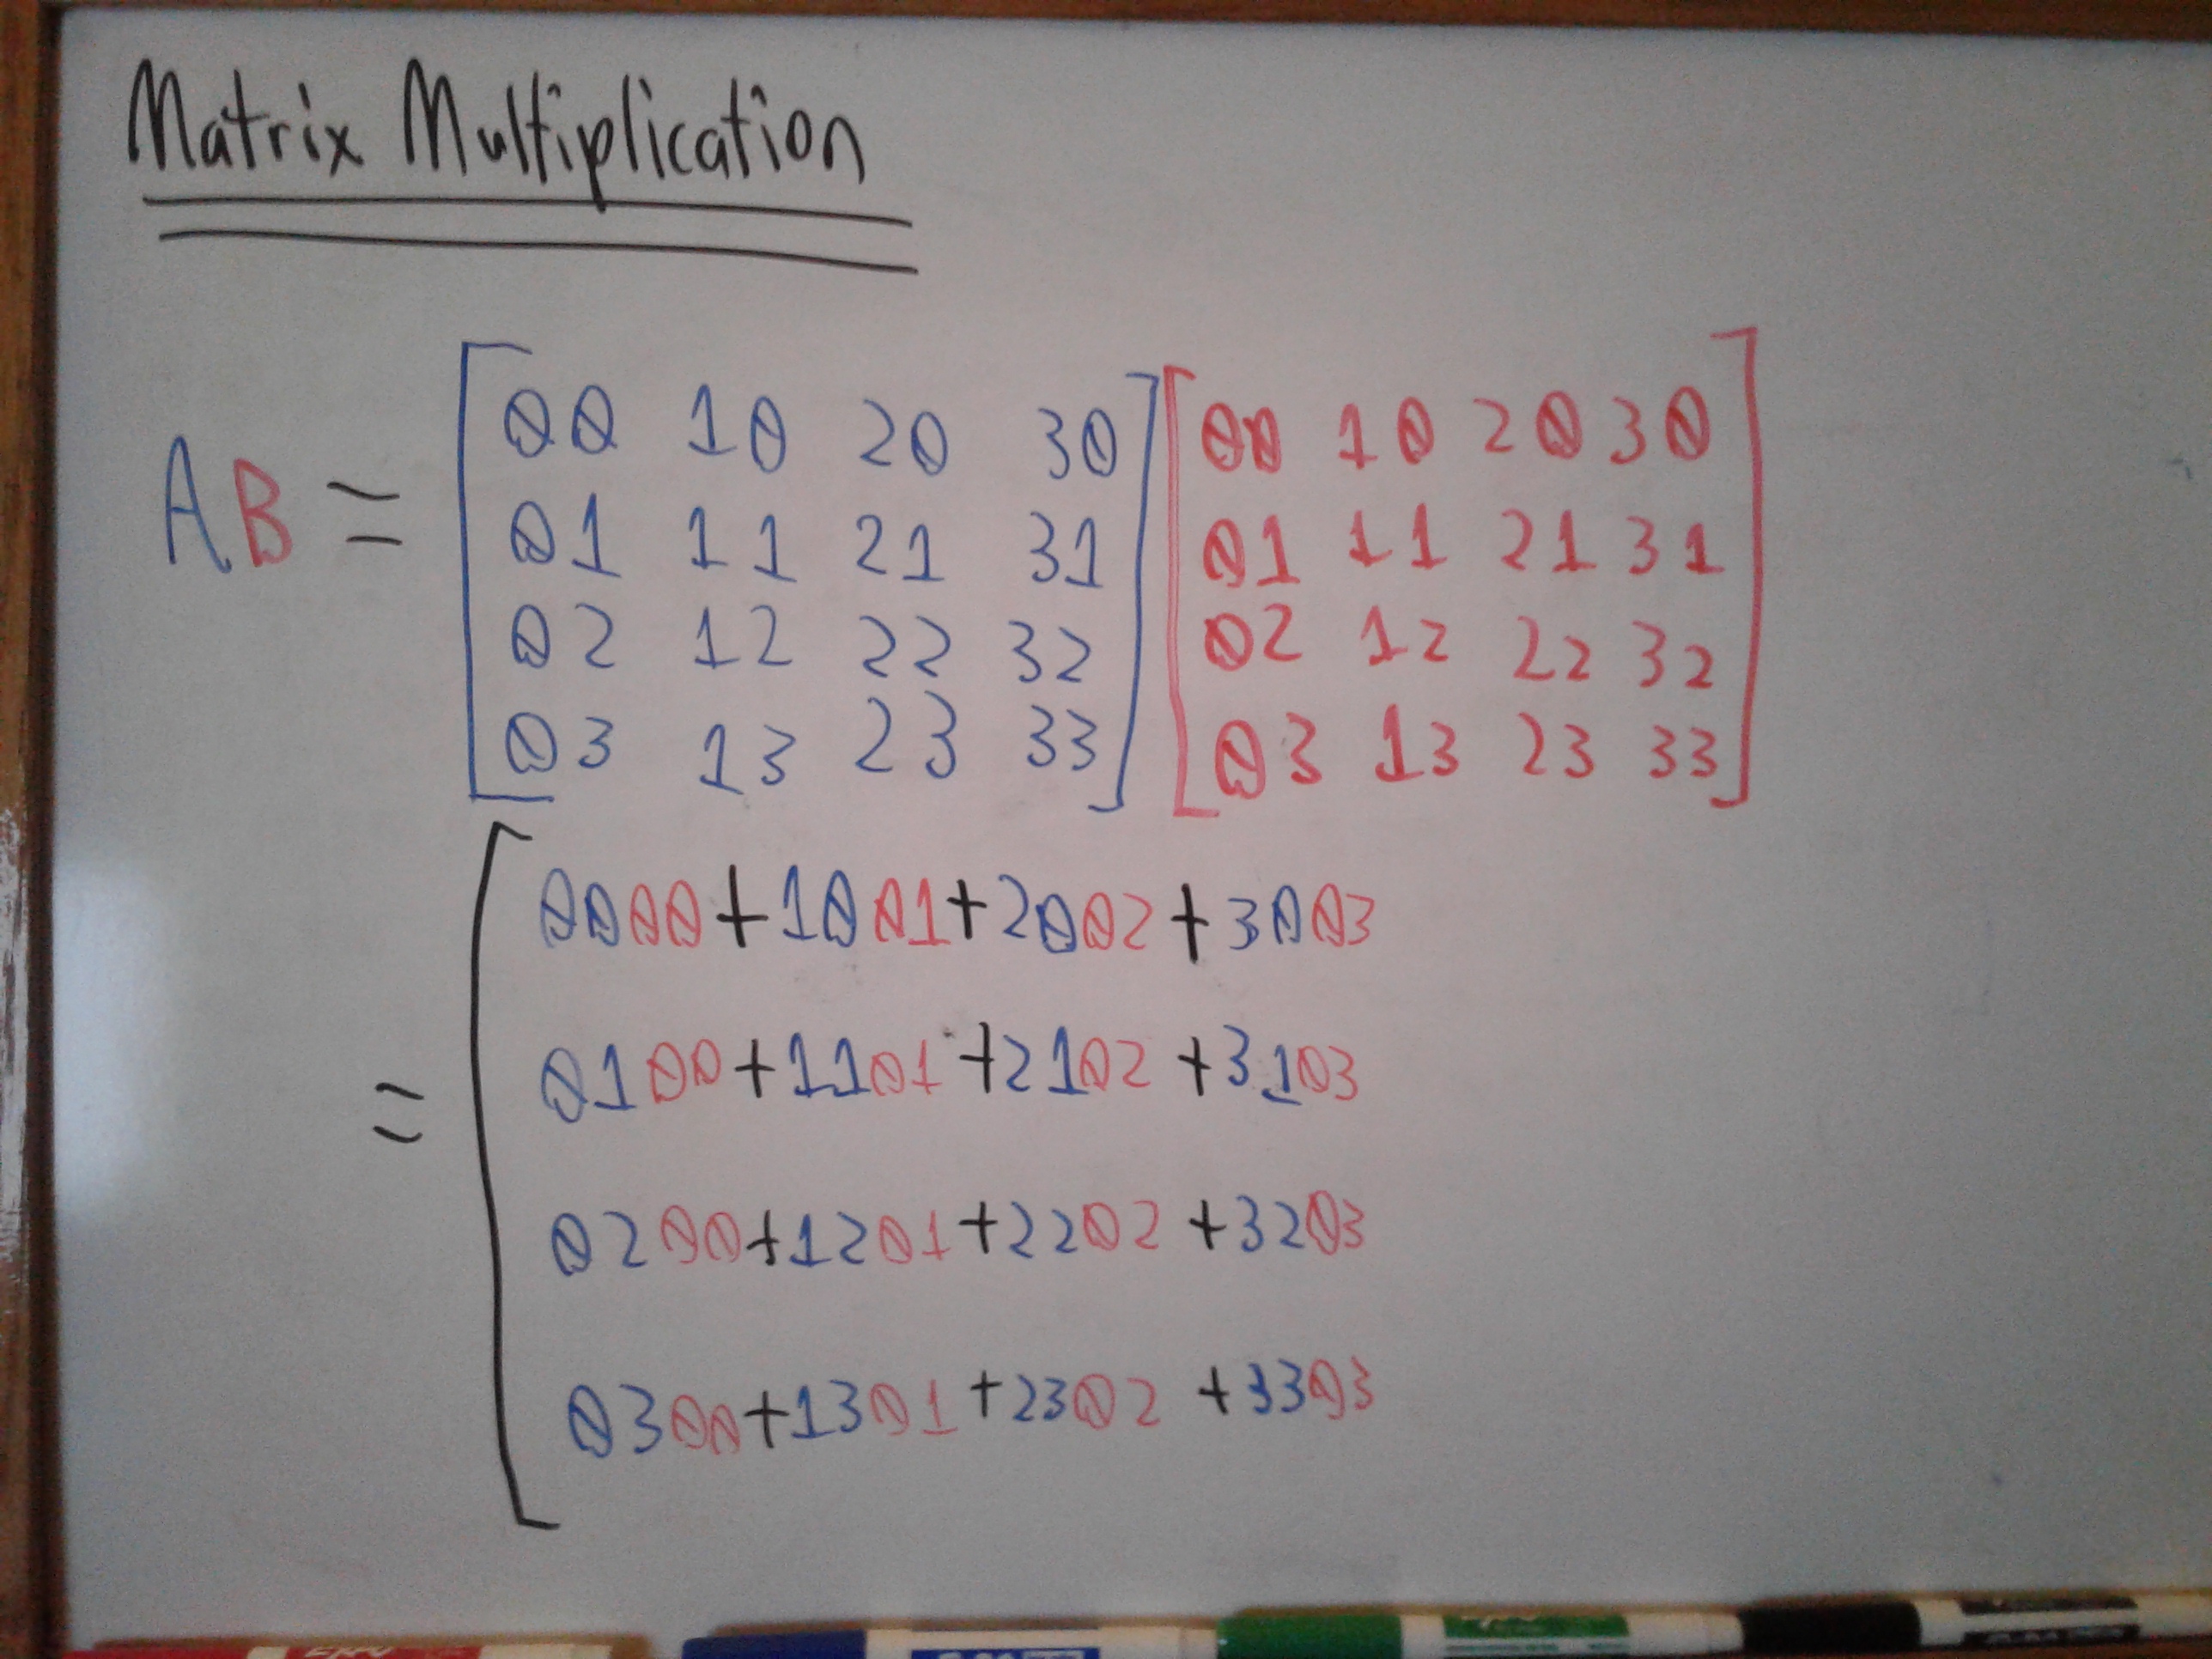 Matrix Multiplication
AB = [00 10 20 30] [00 10 20 30]
01 11 21 31 01 11 21 31
02 12 22 32 02 12 22 32
03 13 23 33 03 13 23 33
= [0000+1001+2002+3003
0100+1101+2102+3103
0200+1201+2202+3203
0300+1301+2302+3303
EXPO